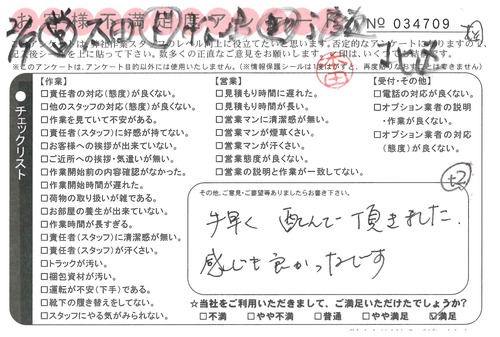 お客様不満足度アンケート
No 034709
※このアンケートは、アンケート目的以外には使用いたしません。
チェックリスト
【作業】
□責任者の対応(態度)が良くない。
□他のスタッフの対応(態度)が良くない。
□作業を見ていて不安がある。
□責任者(スタッフ)に好感が持てない。
□お客様への挨拶が出来ていない。
□ご近所への挨拶・気遣いが無い。
□作業開始前の内容確認がなかった。
□作業開始時間が遅れた。
□荷物の取り扱いが雑である。
□お部屋の養生が出来ていない。
□作業時間が長すぎる。
□責任者(スタッフ)に清潔感が無い。
□責任者(スタッフ)が汗くさい。
□トラックが汚い。
□梱包資材が汚い。
□運転が不安(下手)である。
□靴下の履き替えをしてない。
□スタッフにやる気がみられない。
【営業】
□見積もり時間に遅れた。
□見積もり時間が長い。
□営業マンに清潔感が無い。
□営業マンが煙草くさい。
□営業マンが汗くさい。
□営業態度が良くない。
□営業の説明と作業が一致してない。
【受付・その他】
□電話の対応が良くない。
□オプション業者の説明
・作業が良くない。
□オプション業者の対応
(態度)が良くない。
その他、ご意見・ご要望等ありましたらお書き下さい。
早く
頂きました.
感じも良かったです
☆当社をご利用いただきまして、ご満足いただけたでしょうか?
□不満 □やや不満 □普通 □やや満足 ☑満足